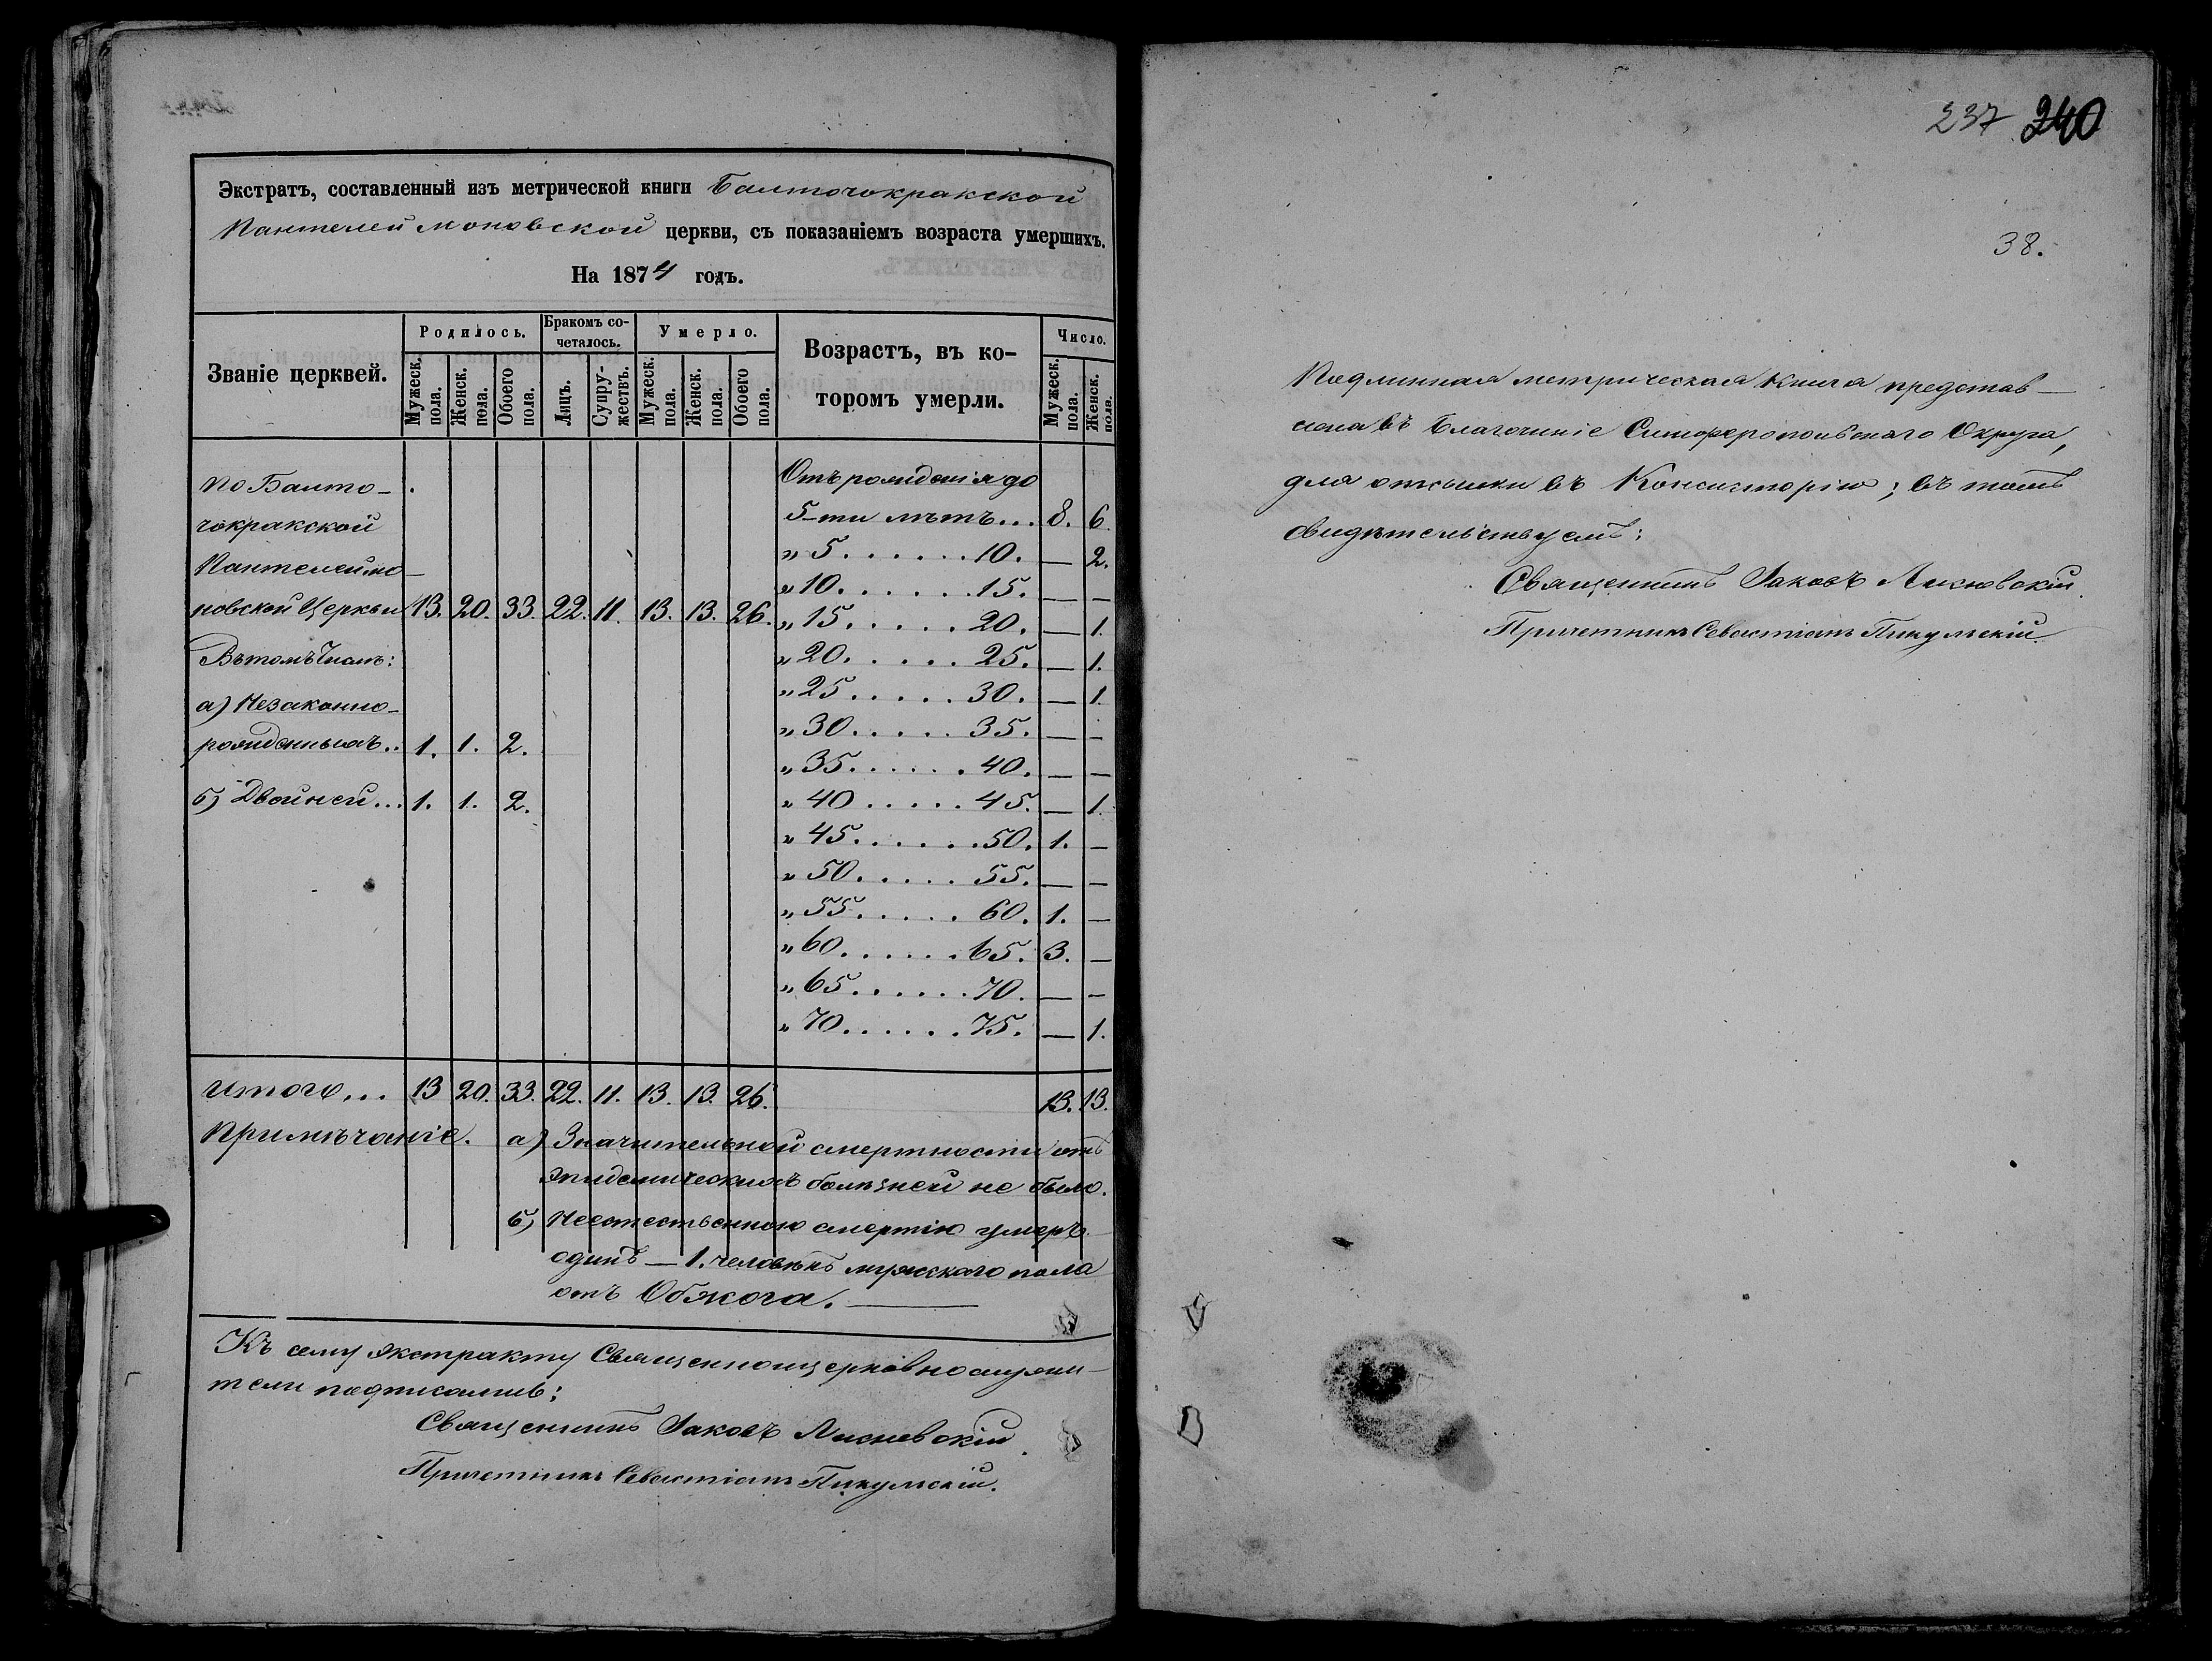 Экстратъ, составленный изъ метрической книги Балточокракской
Пантелеймоновской церкви, съ показаніемъ возраста умершихъ.
На 1874 годъ.
Званіе церквей. Родилось. Бракомъ сочеталось. Умерло. Возрастъ, въ которомъ умерли. Число.
Мужеск. пола. Женск. пола. Обоего пола. Лицъ. Супружествъ. Мужеск. пола. Женск. пола. Обоего пола. Мужеск. пола. Женск. пола.
По Балто-
чокракской
Пантелеймо-
новской Церкви 13. 20. 33. 22. 11. 13. 13. 26.
Въ томъ числѣ:
а) Незаконно-
рожденныхъ.. 1. 1. 2.
б) Двойней... 1. 1. 2.
Отъ рожденія до
5-ти лѣтъ... 8. 6.
„ 5......10. — 2.
„ 10......15. — —
„ 15.....20. — 1.
„ 20.....25. — 1.
„ 25.....30. — 1.
„ 30.....35. — —
„ 35......40. — —
„ 40.....45. — 1.
„ 45......50. 1. —
„ 50.....55. — —
„ 55.....60. 1. —
„ 60......65. 3. —
„ 65......70. — —
„ 70......75. — 1.
Итого... 13 20. 33. 22. 11. 13. 13. 26. 13. 13.
Примѣчаніе. а) Значительной смертности отъ
эпидемическихъ болѣзней не было.
б) Неестественною смертію умеръ
одинъ — 1. человѣкъ мужскаго пола
отъ Обжога. —
Къ сему экстракту Священноцерковнослужи-
тели подписались:
Священникъ Іаковъ Лисневскій.
Причетникъ Севастіанъ Пикульскій.
237 240
38.
Подлинная метрическая Книга представ-
лена въ Благочиніе Симферопольскаго Округа,
для отсылки въ Консисторію; въ томъ
свидѣтельствуемъ:
Священникъ Іаковъ Лисневскій.
Причетникъ Севастіанъ Пикульскій.